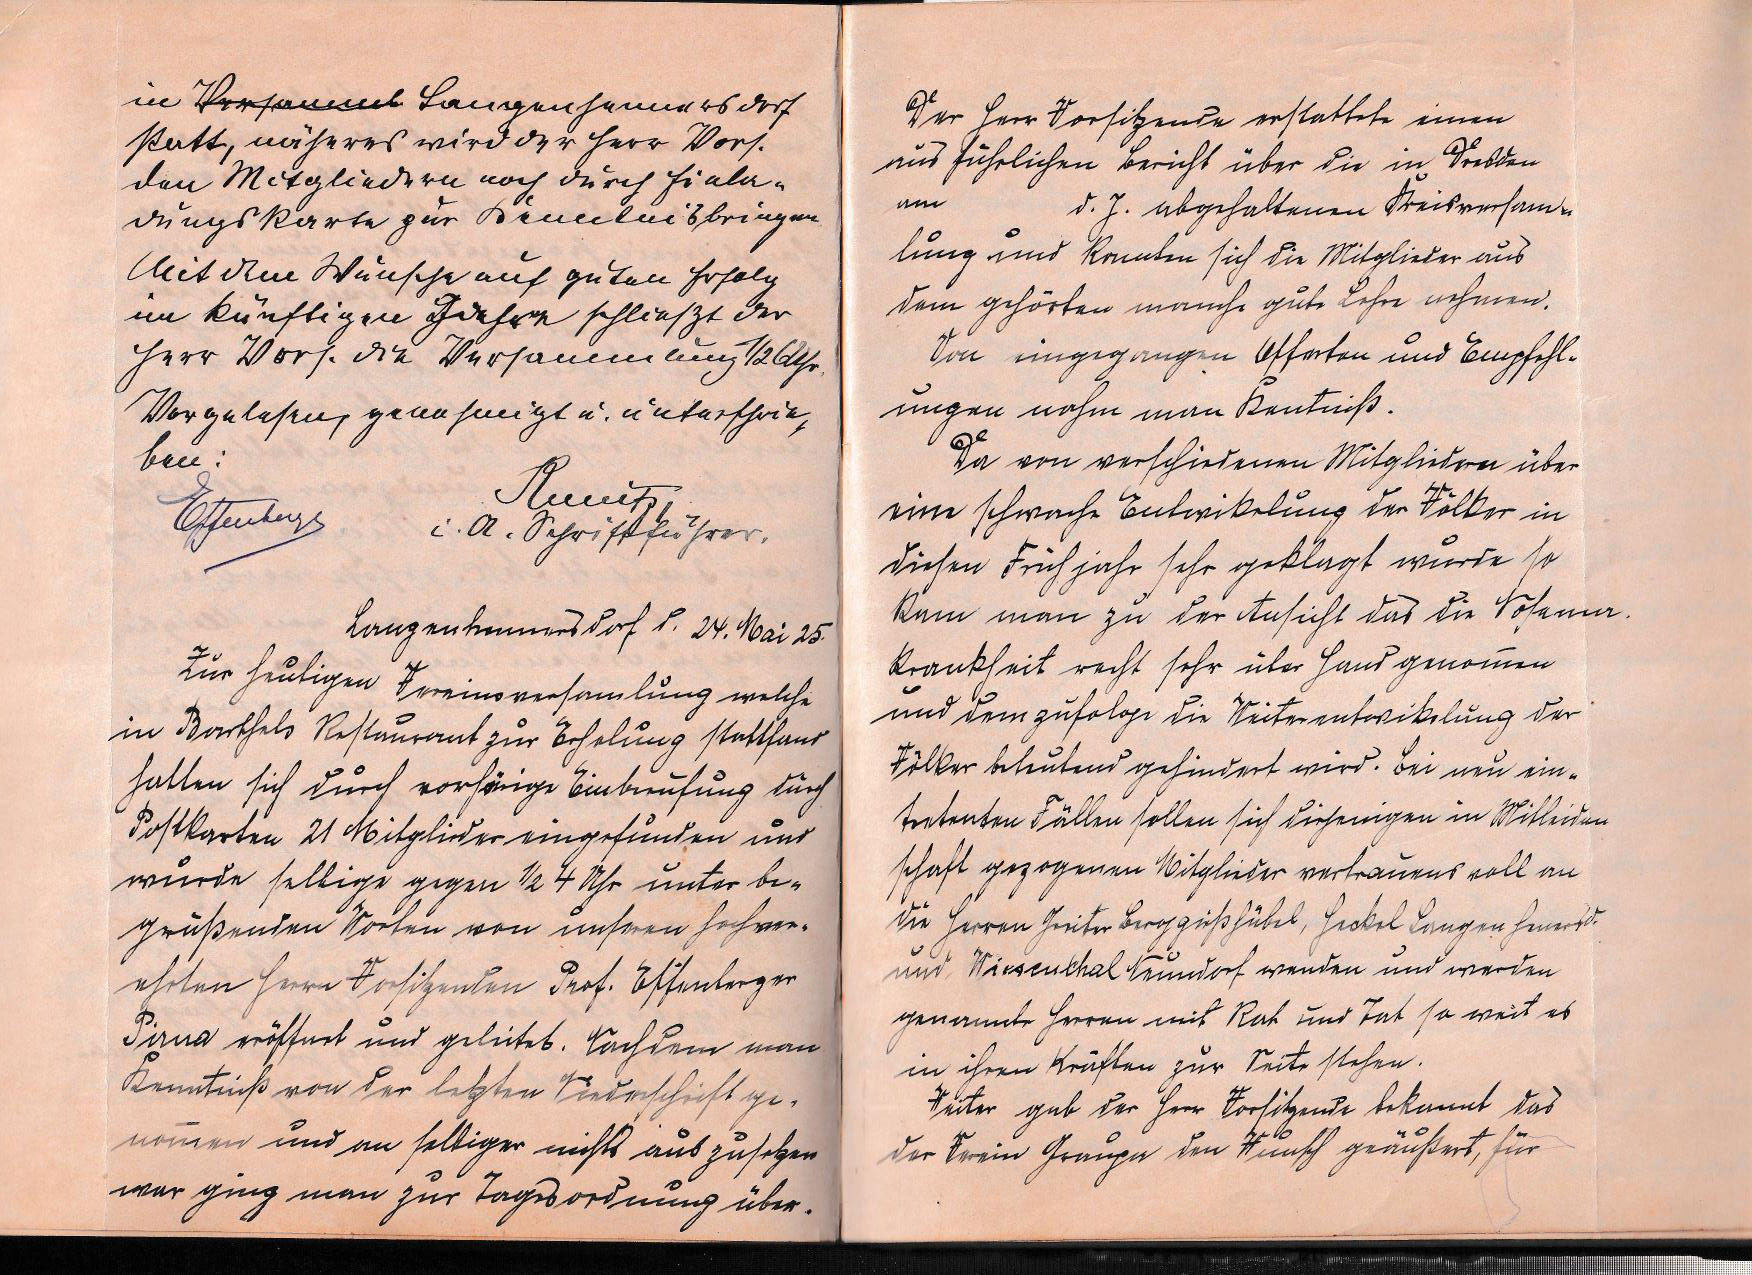 in Versamml Langenhennersdorf
statt, näheres wird der Herr Vors.
den Mitgliedern noch durch Einla-
dungskarte zur Kenntnis bringen
Mit dem Wunsche auf guten Erfolg
im künftigen Jahre schließt der
Herr Vors. die Versammlung 1/2 6 Uhr.
Vorgelesen, genehmigt u. unterschrie-
ben:
Effenberger
i. A. Schriftführer.
Langenhennersdorf d. 24. Mai 25.
Zur heutigen Vereinsversamlung welche
in Barthels Restaurant zur Erholung stattfand
hatten sich durch vorhärige Einberufung durch
Postkarten 21 Mitglieder eingefunden und
wurde selbige gegen 1/2 4 Uhr unter be-
grüßenden Worten von unseren hochver-
ehrten Herrn Vorsitzenden Prof. Effenberger
Pirna eröffnet und geleitet. Nachdem man
Kenntniß von der letzten Niederschrift ge-
nom̄en und an selbiger nichts auszusetzen
war ging man zur Tagesordnung über.
Der Herr Vorsitzende erstattete einen
ausführlichen Bericht über die in Dresden
am d. J. abgehaltenen Kreisversam-
lung und konnten sich die Mitglieder aus
dem gehörten manche gute Lehre nehmen.
Von eingegangen Offerten und Empfehl-
ungen nahm man Kentniß.
Da von verschiedenen Mitgliedern über
eine schwache Entwikelung der Völker in
diesen Frühjahr sehr geklagt wurde so
kam man zu der Ansicht das die Nosema-
krankheit recht sehr über Hand genom̄en
und demzufolge die Weiterentwikelung der
Völker beteutend gehindert wird. Bei neu ein-
tretenten Fällen sollen sich diejenigen in Mitleiden
schaft gezogenen Mitglieder vertrauensvoll an
die Herren Berggießhübel, Heckel Langenhenersd.
und Wiesenthal Neundorf wenden und werden
genannte Herren mit Rat und Tat so weit es
in ihren Kräften zur Seite stehen.
Weiter gab der Herr Vorsitzende bekannt das
der Verein Graupa den Wunsch geäußert, für